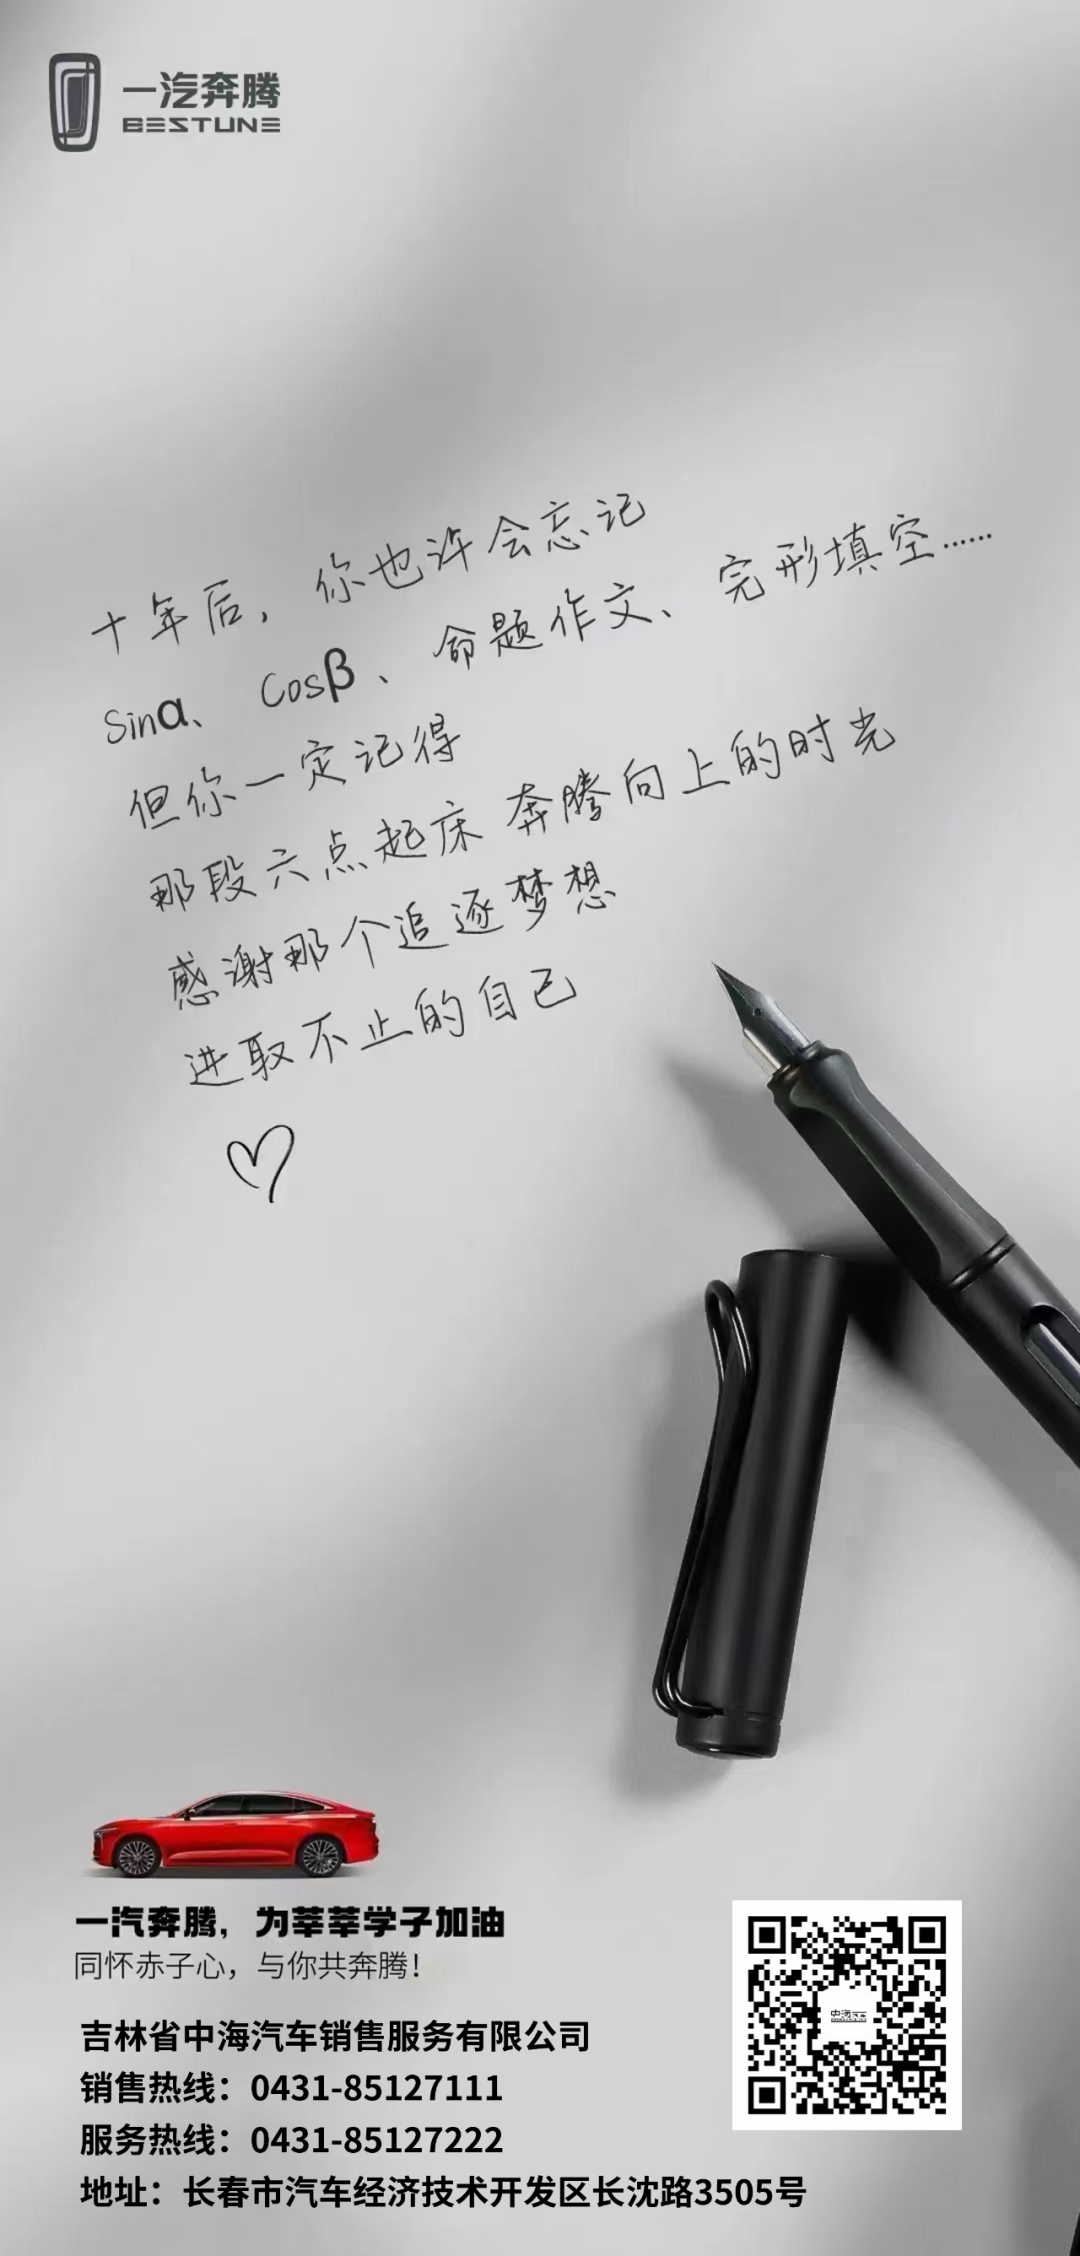 一汽奔腾
BESTUNE
十年后，你也许会忘记
Sinα、Cosβ、命题作文、完形填空……
但你一定记得
那段六点起床 奔腾向上的时光
感谢那个追逐梦想
进取不止的自己
一汽奔腾，为莘莘学子加油
同怀赤子心，与你共奔腾！
中海汽车
吉林省中海汽车销售服务有限公司
销售热线：0431-85127111
服务热线：0431-85127222
地址：长春市汽车经济技术开发区长沈路3505号